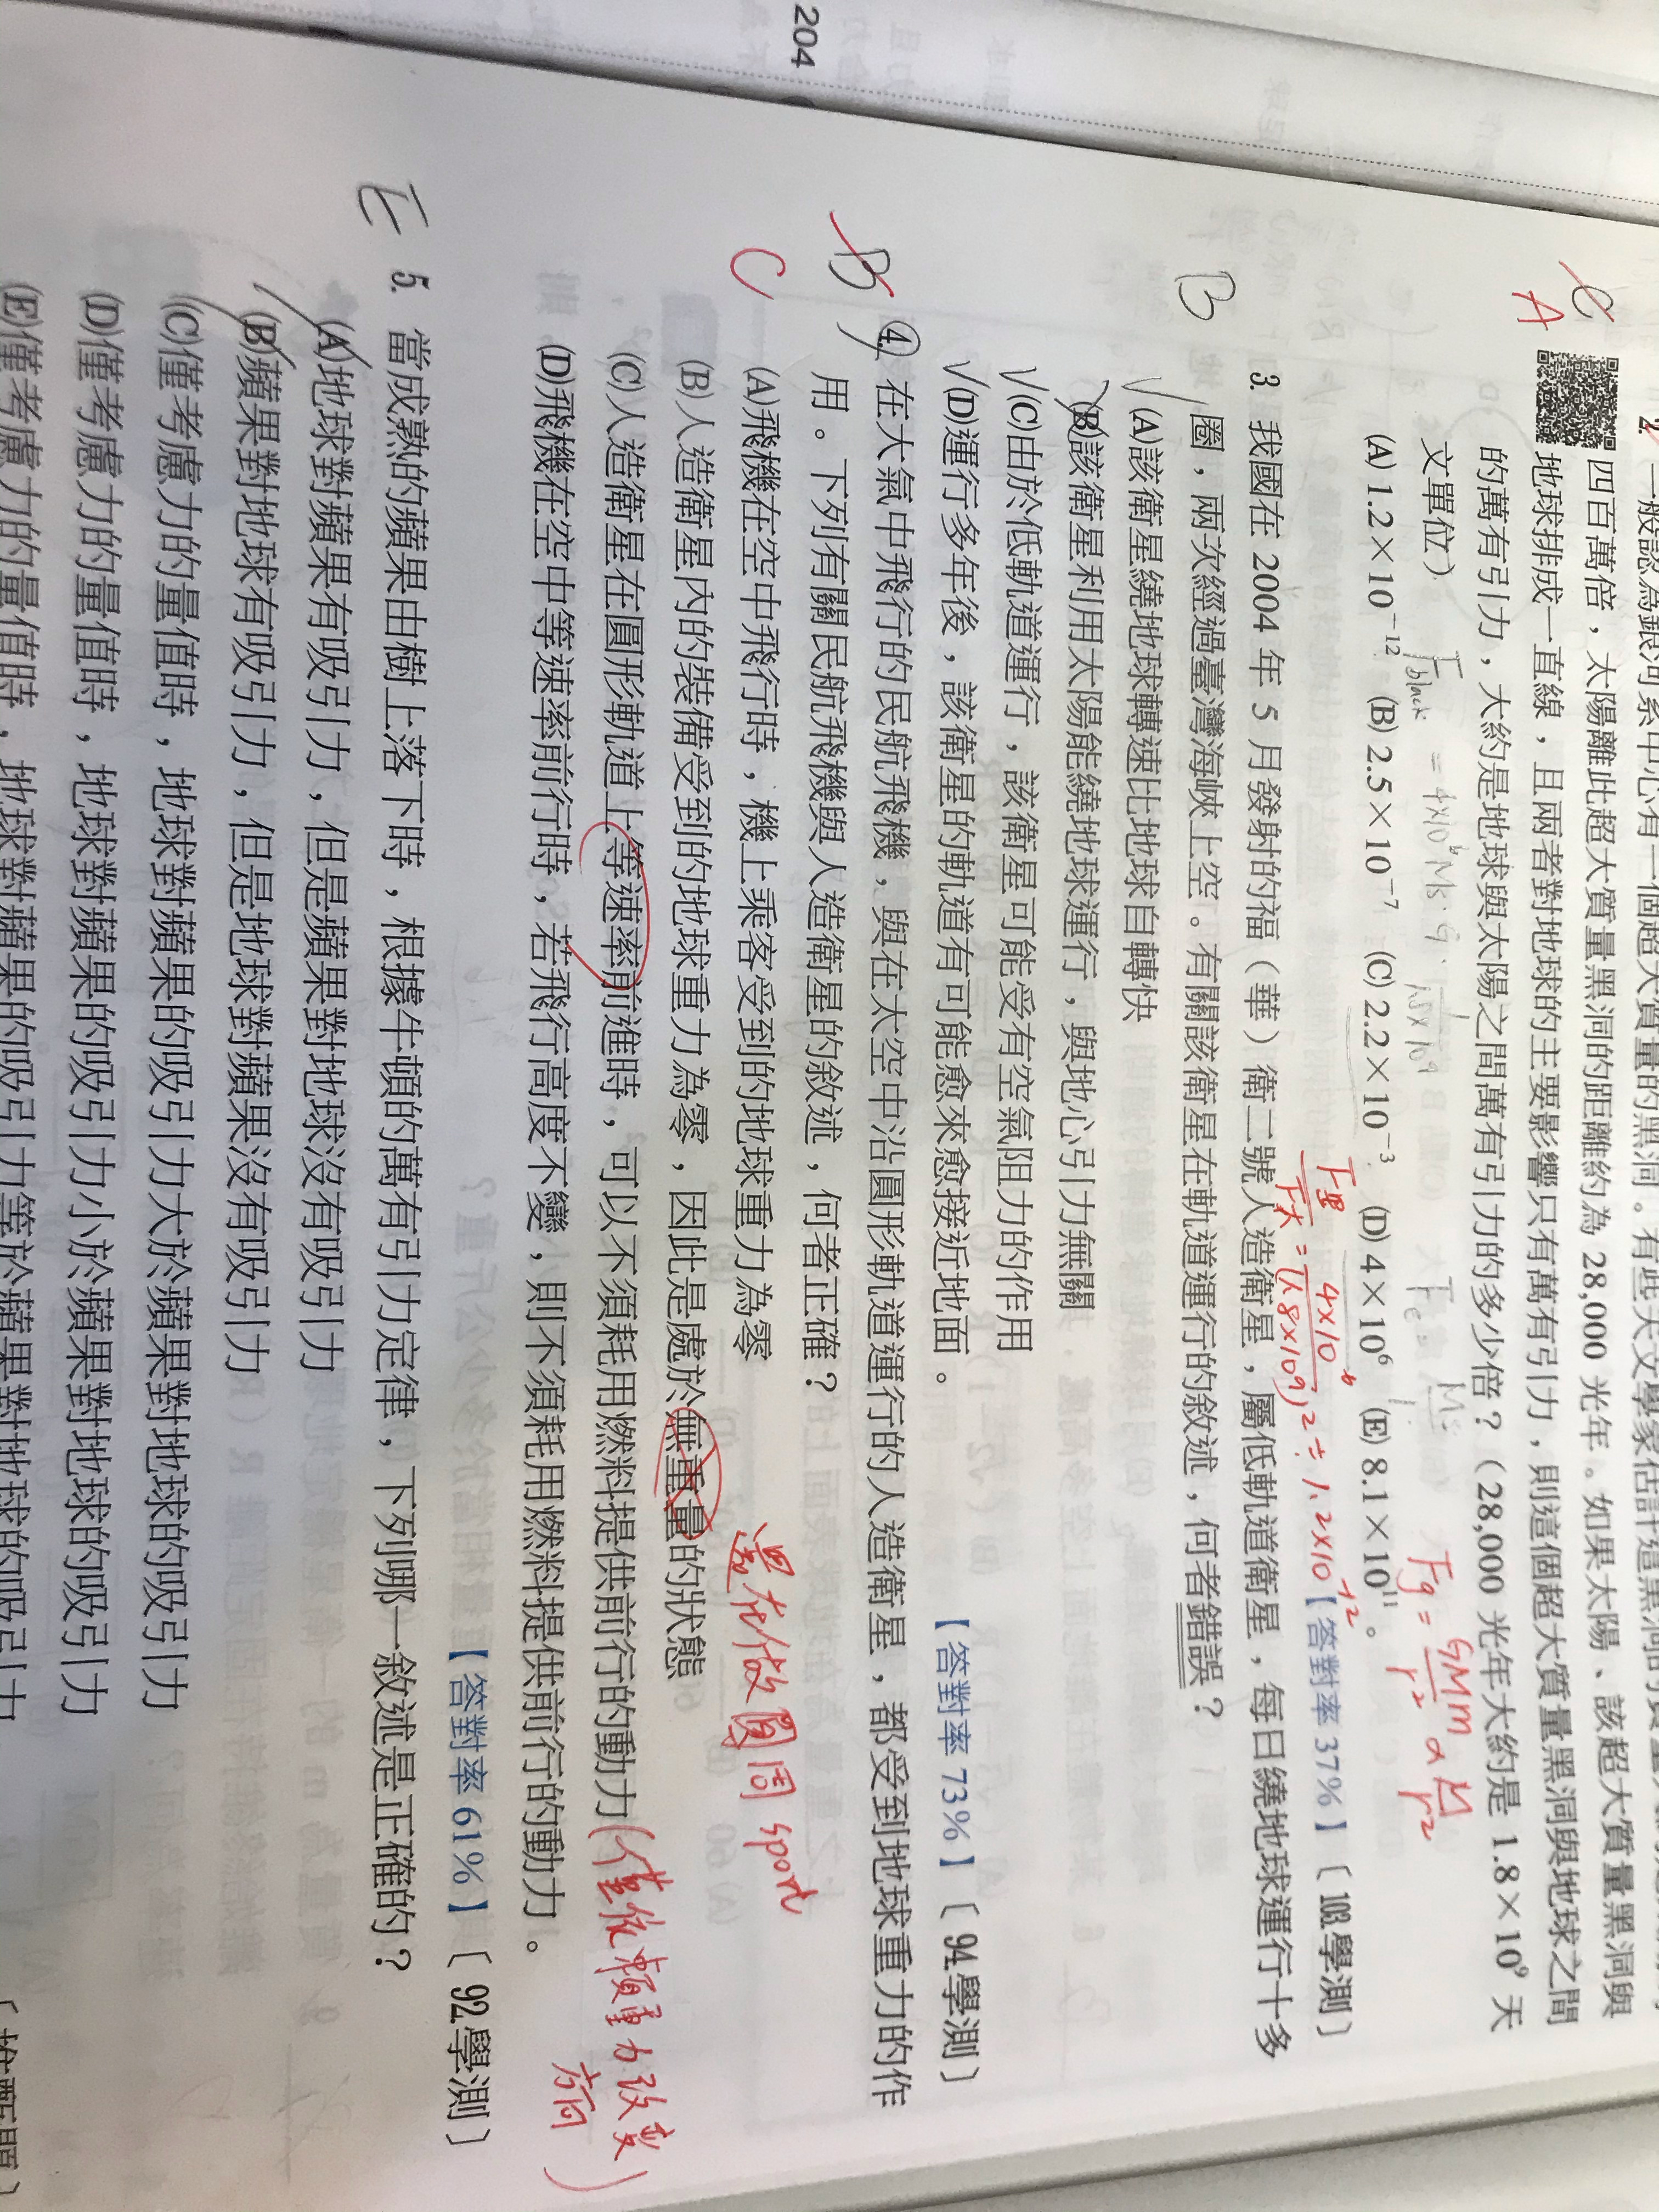 204
2. 一般認為銀河系中心有一個超大質量的黑洞。有些天文學家估計這黑洞的質量
四百萬倍，太陽離此超大質量黑洞的距離約為 28,000 光年。如果太陽、該超大質量黑洞與
地球排成一直線，且兩者對地球的主要影響只有萬有引力，則這個超大質量黑洞與地球之間
的萬有引力，大約是地球與太陽之間萬有引力的多少倍？（28,000 光年大約是 1.8×10⁹ 天
文單位）
(A) 1.2×10⁻¹² (B) 2.5×10⁻⁷ (C) 2.2×10⁻³ (D) 4×10⁶ (E) 8.1×10¹¹。
C
A
Fblack = 4×10⁶Ms·G
Fg = GMm/r² α M/r²
F黑/F太 = 4×10⁶/(1.8×10⁹)² ≒ 1.2×10⁻¹²
【答對率 37%】〔103.學測〕
B 3. 我國在 2004 年 5 月發射的福（華）衛二號人造衛星，屬低軌道衛星，每日繞地球運行十多
圈，兩次經過臺灣海峽上空。有關該衛星在軌道運行的敘述，何者錯誤？
(A)該衛星繞地球轉速比地球自轉快
(B)該衛星利用太陽能繞地球運行，與地心引力無關
(C)由於低軌道運行，該衛星可能受有空氣阻力的作用
(D)運行多年後，該衛星的軌道有可能愈來愈接近地面。
【答對率 73%】〔94.學測〕
D
C
4. 在大氣中飛行的民航飛機，與在太空中沿圓形軌道運行的人造衛星，都受到地球重力的作
用。下列有關民航飛機與人造衛星的敘述，何者正確？
(A)飛機在空中飛行時，機上乘客受到的地球重力為零
(B)人造衛星內的裝備受到的地球重力為零，因此是處於無重量的狀態
還在做圓周 sport
(C)人造衛星在圓形軌道上等速率前進時，可以不須耗用燃料提供前行的動力
(僅依賴重力改變方向)
(D)飛機在空中等速率前行時，若飛行高度不變，則不須耗用燃料提供前行的動力。
【答對率 61%】〔92.學測〕
E 5. 當成熟的蘋果由樹上落下時，根據牛頓的萬有引力定律，下列哪一敘述是正確的？
(A)地球對蘋果有吸引力，但是蘋果對地球沒有吸引力
(B)蘋果對地球有吸引力，但是地球對蘋果沒有吸引力
(C)僅考慮力的量值時，地球對蘋果的吸引力大於蘋果對地球的吸引力
(D)僅考慮力的量值時，地球對蘋果的吸引力小於蘋果對地球的吸引力
(E)僅考慮力的量值時，地球對蘋果的吸引力等於蘋果對地球的吸引力